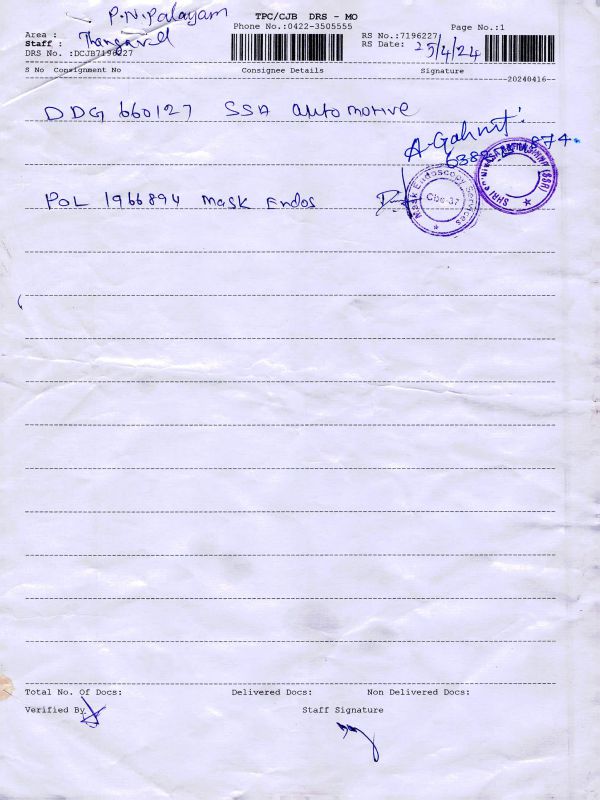 P.N.Palayam TPC/CJB DRS - MO
Phone No.:0422-3505555 Page No.:1
Area : RS No.:7196227
Staff : Thangavel RS Date: 25/4/24
DRS No. :DCJB7196227
S No Consignment No Consignee Details Signature
20240416
DDG 660127 SSA automotive
POL 1966894 Mask Endos
Mask Endoscopy Services
Cbe-37
Total No. Of Docs: Delivered Docs: Non Delivered Docs:
Verified By Staff Signature